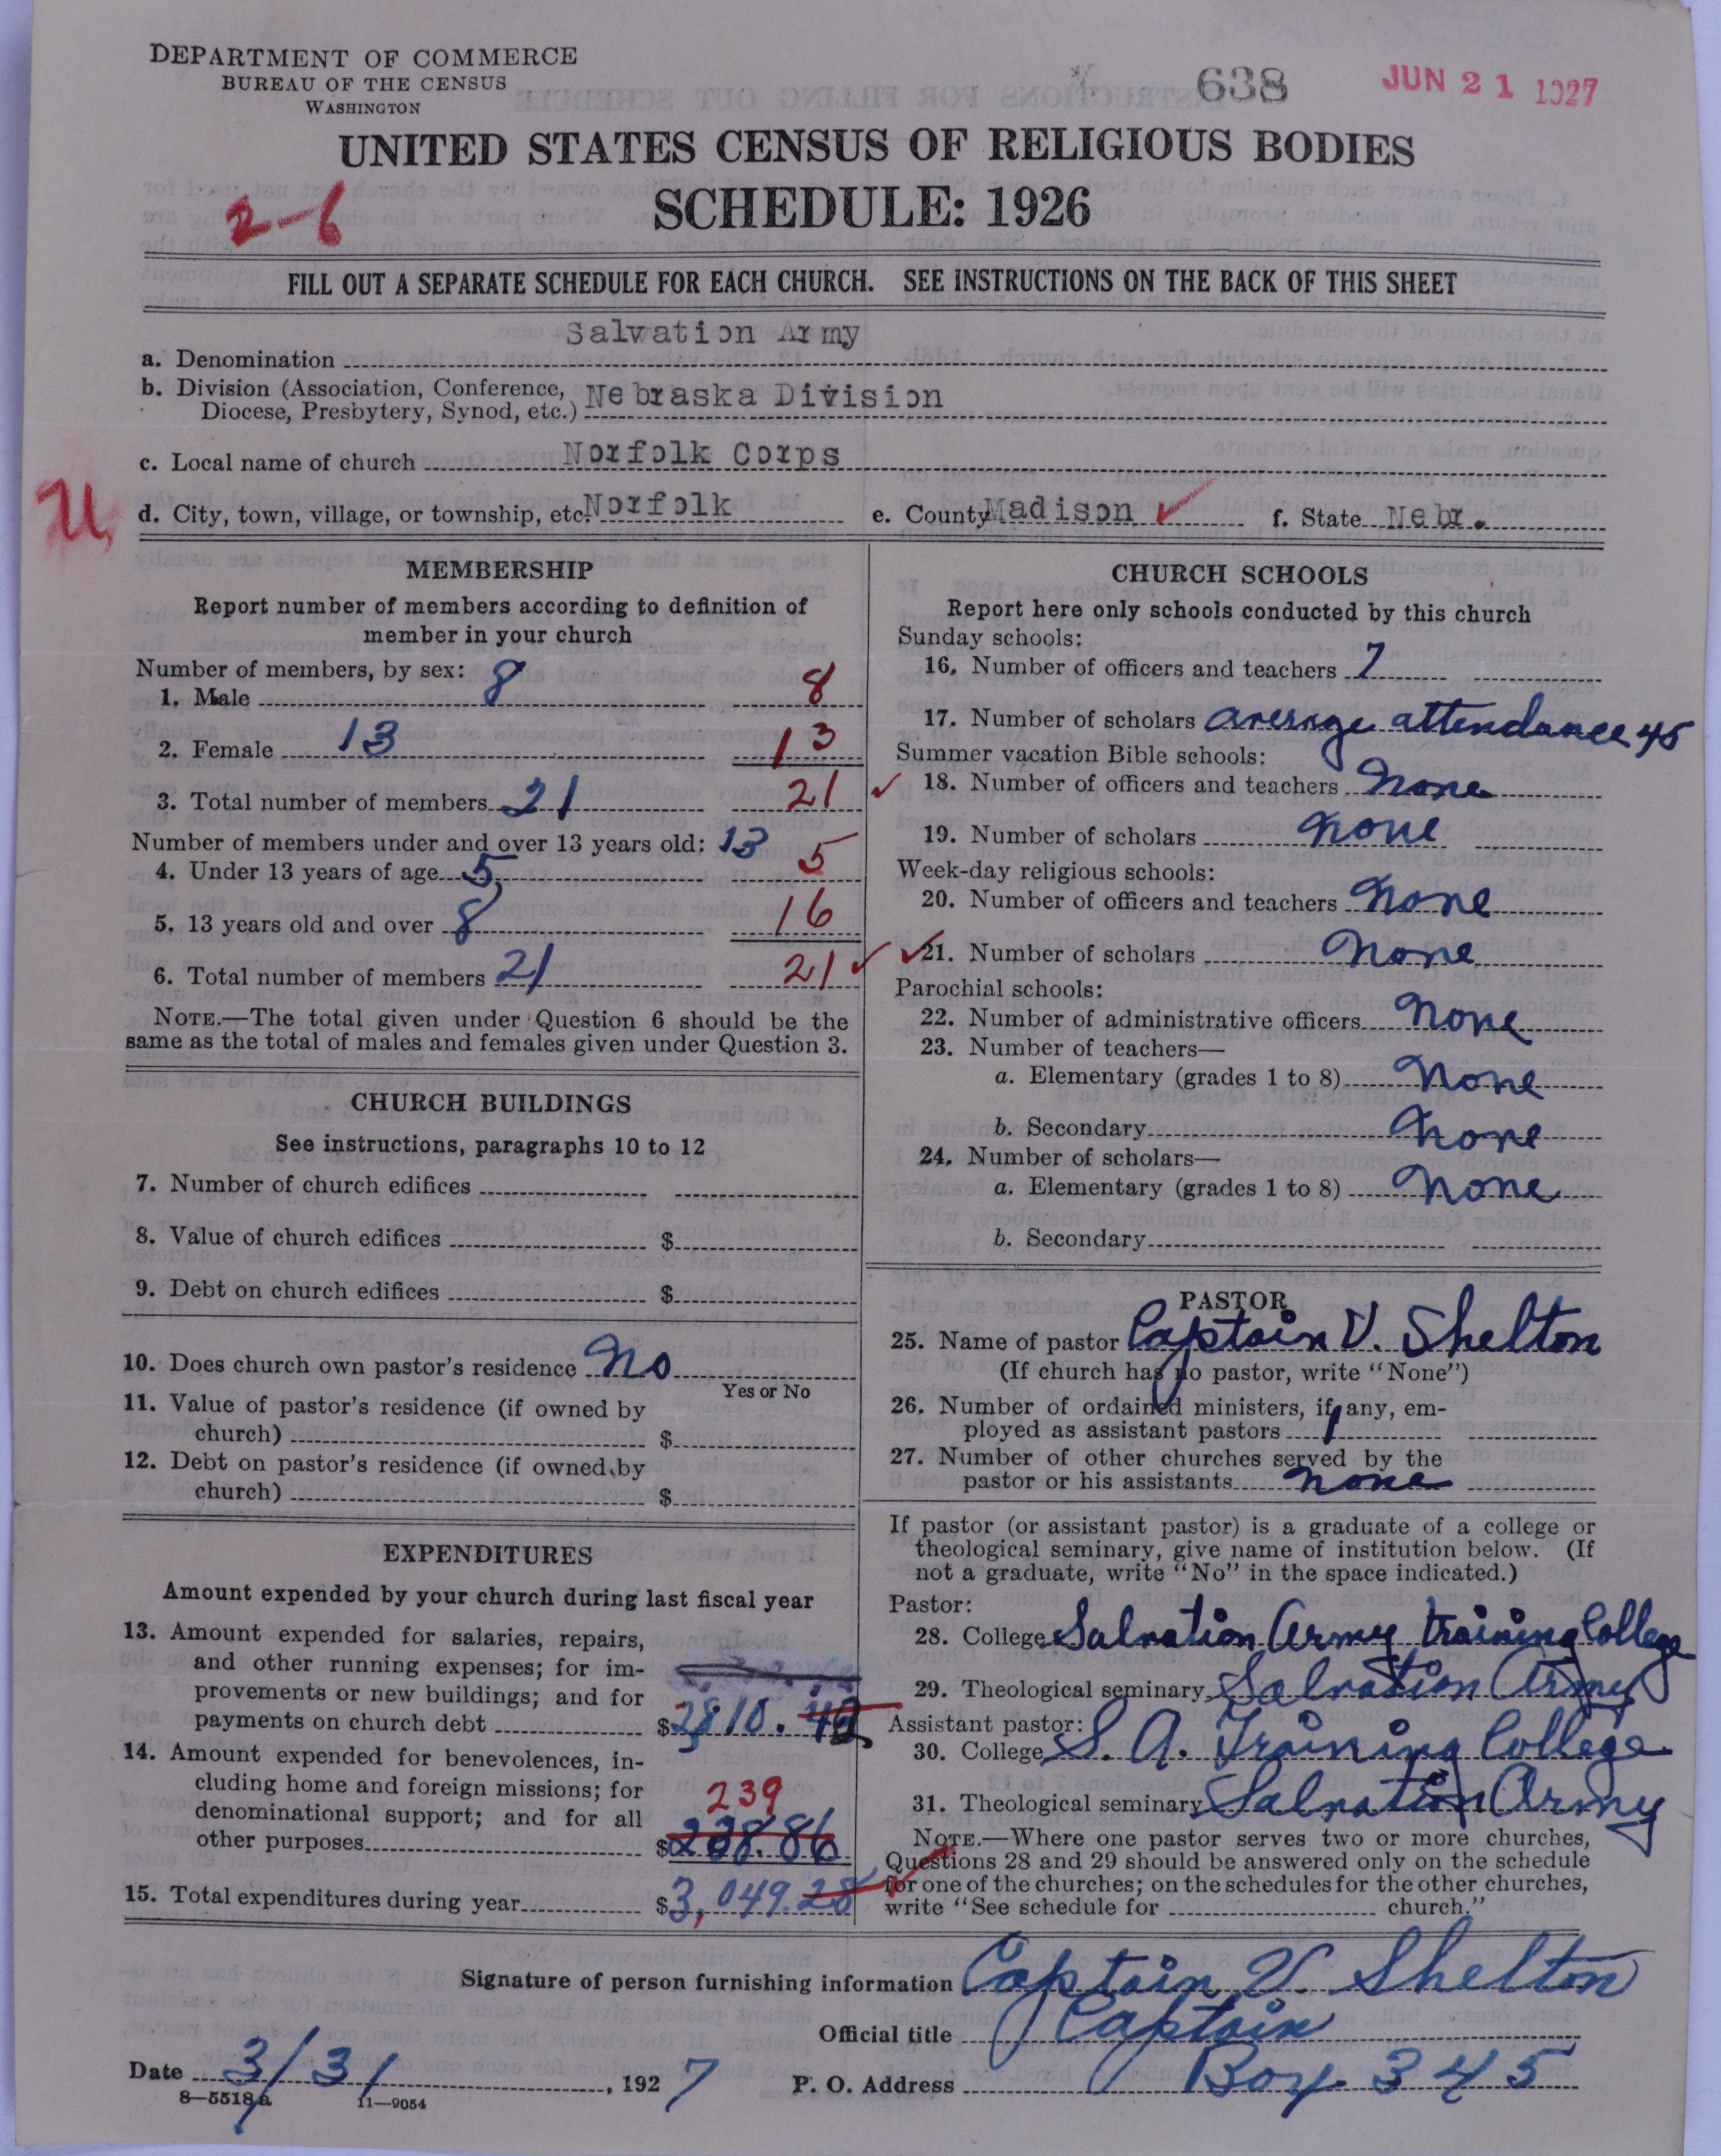 DEPARTMENT OF COMMERCE
BUREAU OF THE CENSUS
WASHINGTON
638
JUN 21 1927
UNITED STATES CENSUS OF RELIGIOUS BODIES
SCHEDULE: 1926
2-6
FILL OUT A SEPARATE SCHEDULE FOR EACH CHURCH. SEE INSTRUCTIONS ON THE BACK OF THIS SHEET
a. Denomination Salvation Army
b. Division (Association, Conference, Diocese, Presbytery, Synod, etc.) Nebraska Division
c. Local name of church Norfolk Corps
d. City, town, village, or township, etc. Norfolk e. County Madison ✓ f. State Nebr.
MEMBERSHIP
Report number of members according to definition of
member in your church
Number of members, by sex:
1. Male 8 8
2. Female 13 13
3. Total number of members 21 21
Number of members under and over 13 years old: 13
4. Under 13 years of age 5 5
5. 13 years old and over 8 16
6. Total number of members 21 21 ✓
NOTE.—The total given under Question 6 should be the
same as the total of males and females given under Question 3.
CHURCH BUILDINGS
See instructions, paragraphs 10 to 12
7. Number of church edifices
8. Value of church edifices $
9. Debt on church edifices $
10. Does church own pastor's residence No
Yes or No
11. Value of pastor's residence (if owned by
church) $
12. Debt on pastor's residence (if owned by
church) $
EXPENDITURES
Amount expended by your church during last fiscal year
13. Amount expended for salaries, repairs,
and other running expenses; for im-
provements or new buildings; and for
payments on church debt $2810.42
14. Amount expended for benevolences, in-
cluding home and foreign missions; for
denominational support; and for all
239
other purposes $238.86
15. Total expenditures during year $3,049.28
CHURCH SCHOOLS
Report here only schools conducted by this church
Sunday schools:
16. Number of officers and teachers 7
17. Number of scholars average attendance 45
Summer vacation Bible schools:
✓ 18. Number of officers and teachers None
19. Number of scholars None
Week-day religious schools:
20. Number of officers and teachers None
✓ 21. Number of scholars None
Parochial schools:
22. Number of administrative officers None
23. Number of teachers—
a. Elementary (grades 1 to 8) None
b. Secondary None
24. Number of scholars—
a. Elementary (grades 1 to 8) None
b. Secondary
PASTOR
25. Name of pastor Captain V. Shelton
(If church has no pastor, write "None")
26. Number of ordained ministers, if any, em-
ployed as assistant pastors 1
27. Number of other churches served by the
pastor or his assistants none
If pastor (or assistant pastor) is a graduate of a college or
theological seminary, give name of institution below. (If
not a graduate, write "No" in the space indicated.)
Pastor:
28. College Salvation Army Training College
29. Theological seminary Salvation Army
Assistant pastor:
30. College S. A. Training College
31. Theological seminary Salvation Army
NOTE.—Where one pastor serves two or more churches,
Questions 28 and 29 should be answered only on the schedule
for one of the churches; on the schedules for the other churches,
write "See schedule for church."
Signature of person furnishing information Captain V. Shelton
Official title Captain
Date 3/31, 1927 P. O. Address Box 345
8—5518a 11—9054